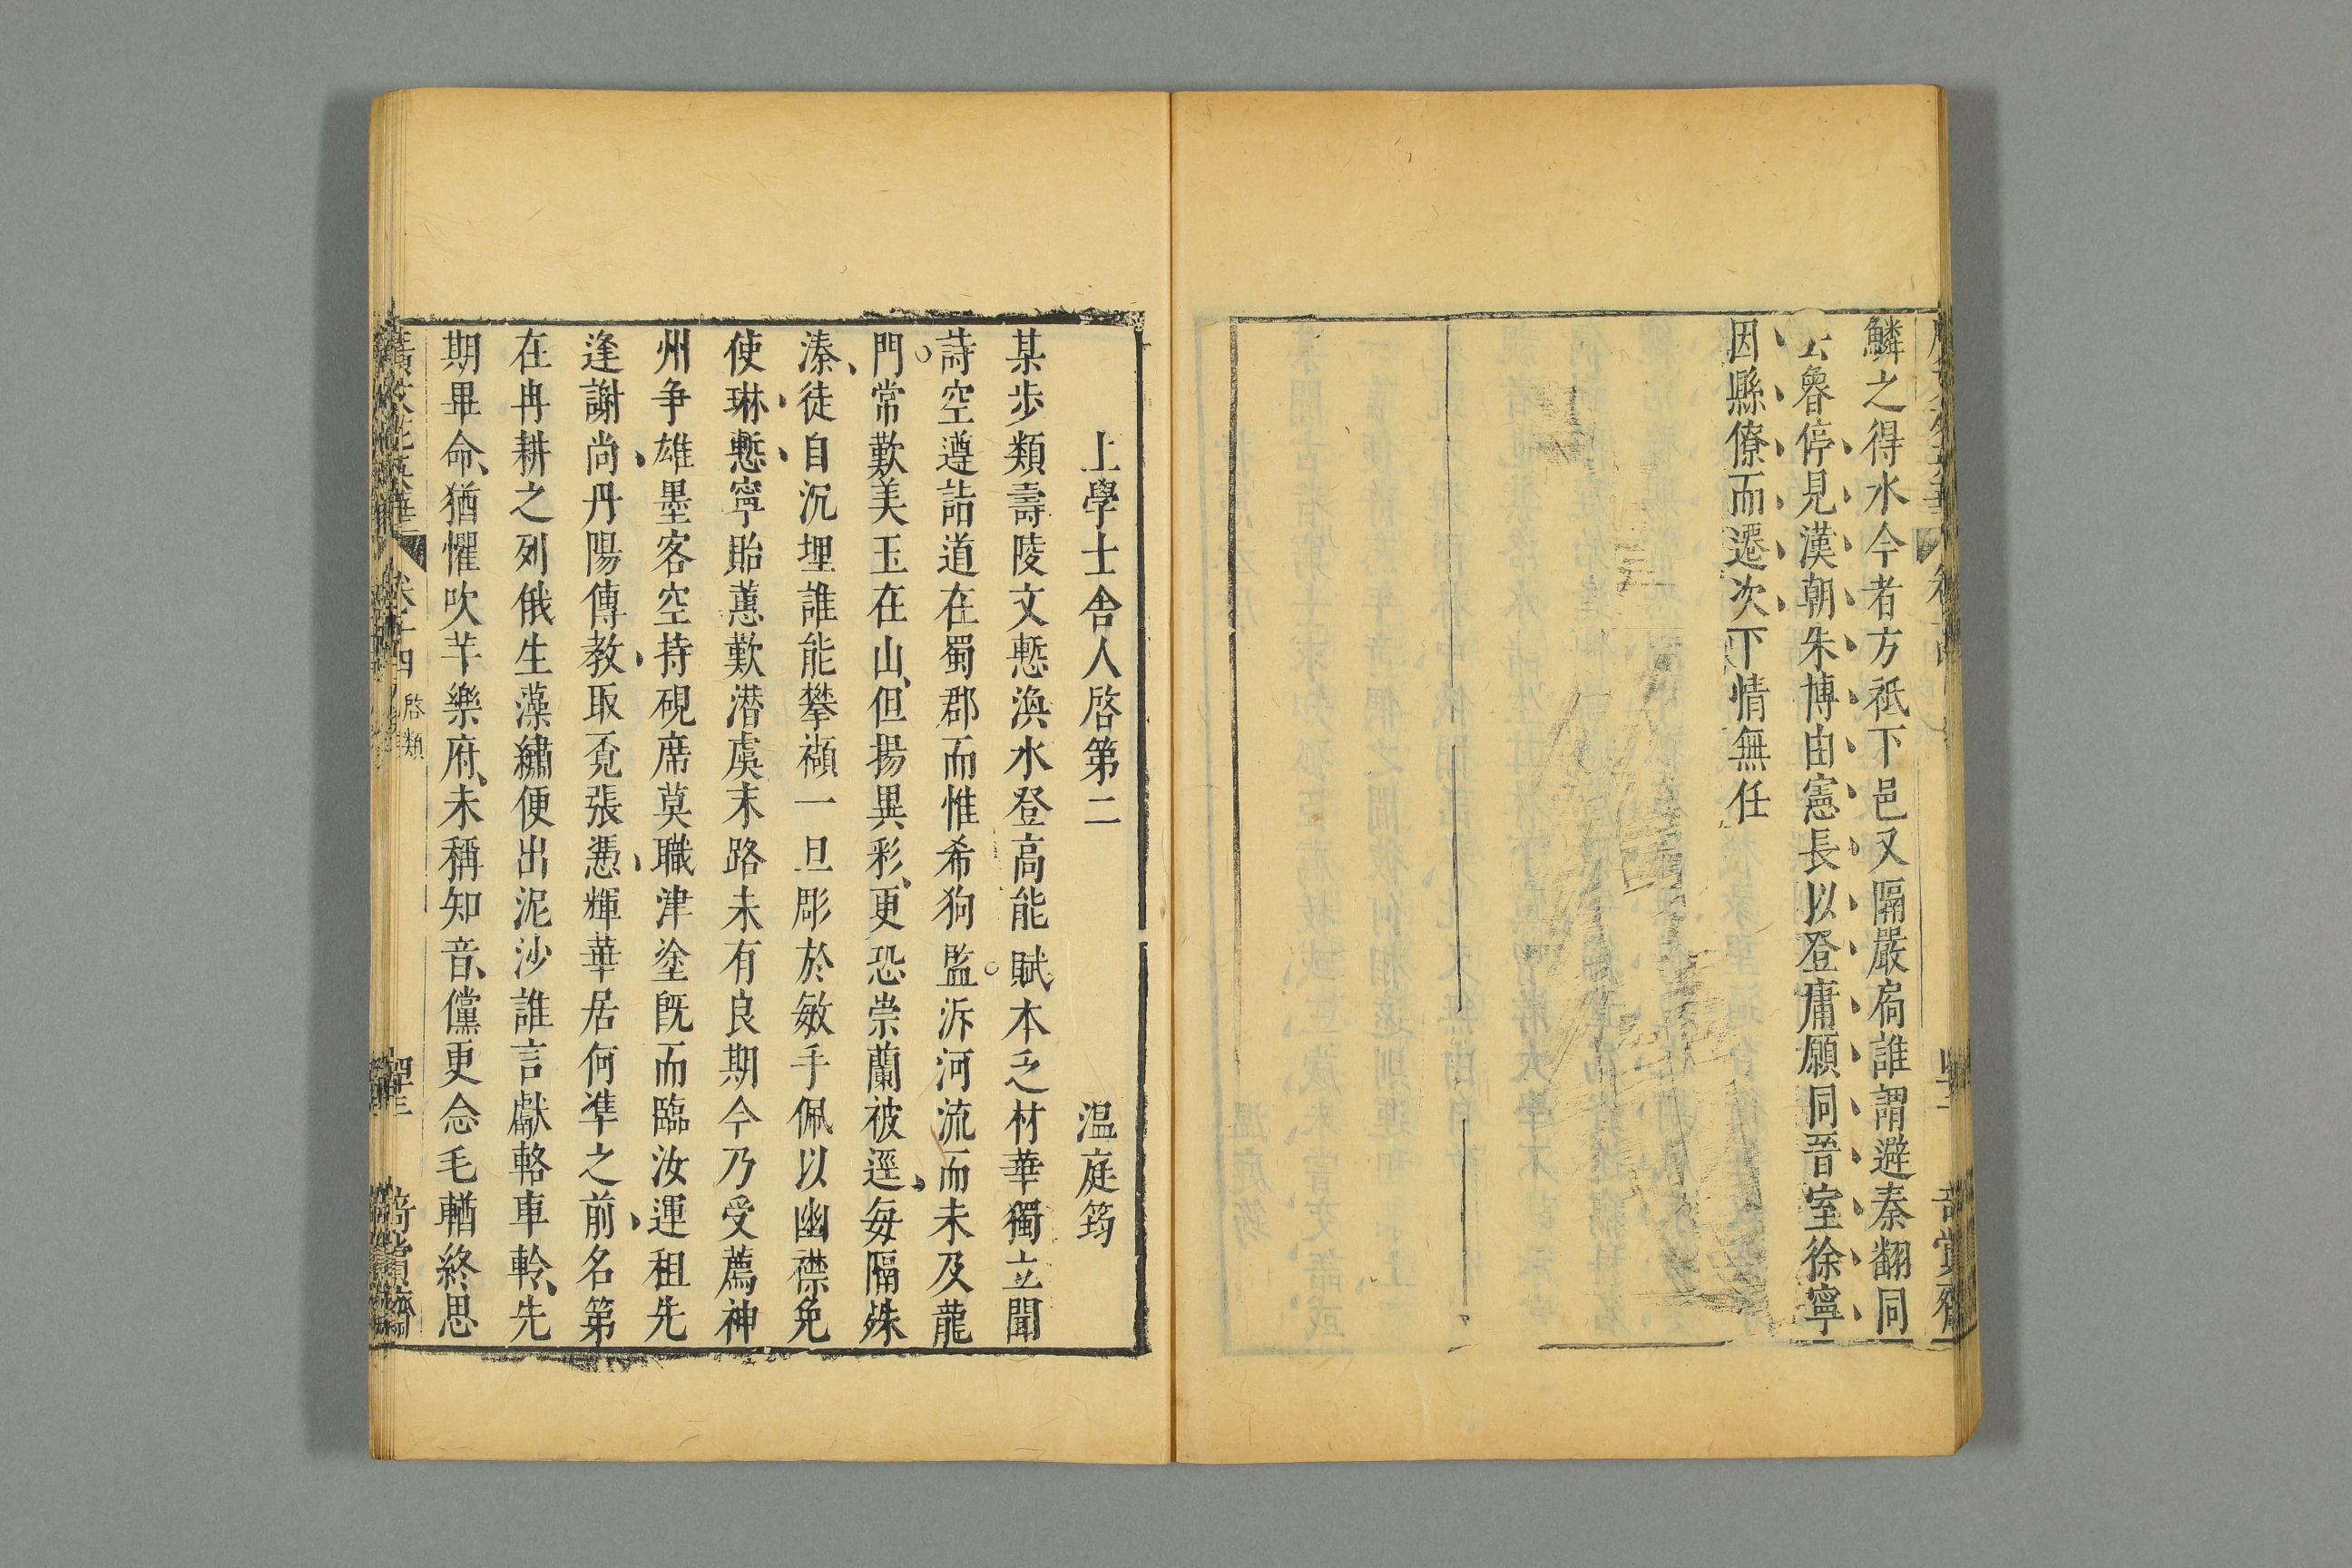 鱗之得水今者方祇下邑又隔嚴扃誰謂避秦翻同
去魯停見漢朝朱博由憲長以登庸願同晉室徐寧
因縣僚而遷次下情無任
上學士舍人啓第二
温庭筠
某步類壽陵文慙渙水登高能賦本乏材華獨立聞
詩空遵詰道在蜀郡而惟希狗監泝河流而未及龍
門常歎美玉在山但揚異彩更恐崇蘭被逕每隔殊
溱徒自沉埋誰能攀襭一旦彫於敏手佩以幽襟免
使琳慙寧貽蕙歎潜虞末路未有良期今乃受薦神
州争雄墨客空持硯席莫職津塗旣而臨汝運租先
逢謝尚丹陽傳教取覔張憑輝華居何準之前名第
在冉耕之列俄生藻繡便出泥沙誰言獻輅車軨先
期畢命猶懼吹竽樂府未稱知音儻更念毛輶終思
卷十四
啓類
奇賞齋